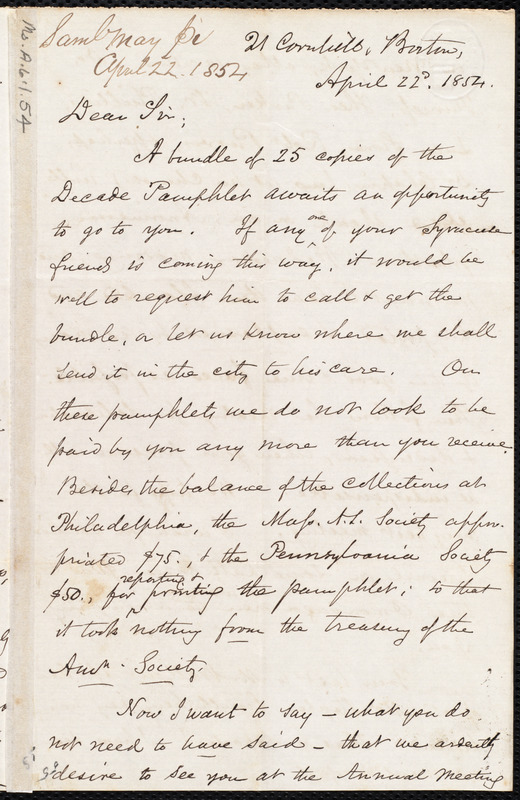 Ms.A.6.1.54
Saml. May Jr
April 22. 1854
21 Cornhill, Boston,
April 22d. 1854.
Dear Sir;
A bundle of 25 copies of the
Decade Pamphlet awaits an opportunity
to go to you. If any one of your Syracuse
friends is coming this way, it would be
well to request him to call & get the
bundle, or let us know where we shall
send it in the city to his care. On
these pamphlets we do not look to be
paid by you any more than you receive.
Besides the balance of the collections at
Philadelphia, the Mass. A.S. Society appro-
priated $75., & the Pennsylvania Society
$50., for reporting & printing the pamphlet; so that
it took nothing from the treasury of the
Amn. Society.
Now I want to say – what you do
not need to have said – that we ardently
desire to see you at the Annual Meeting